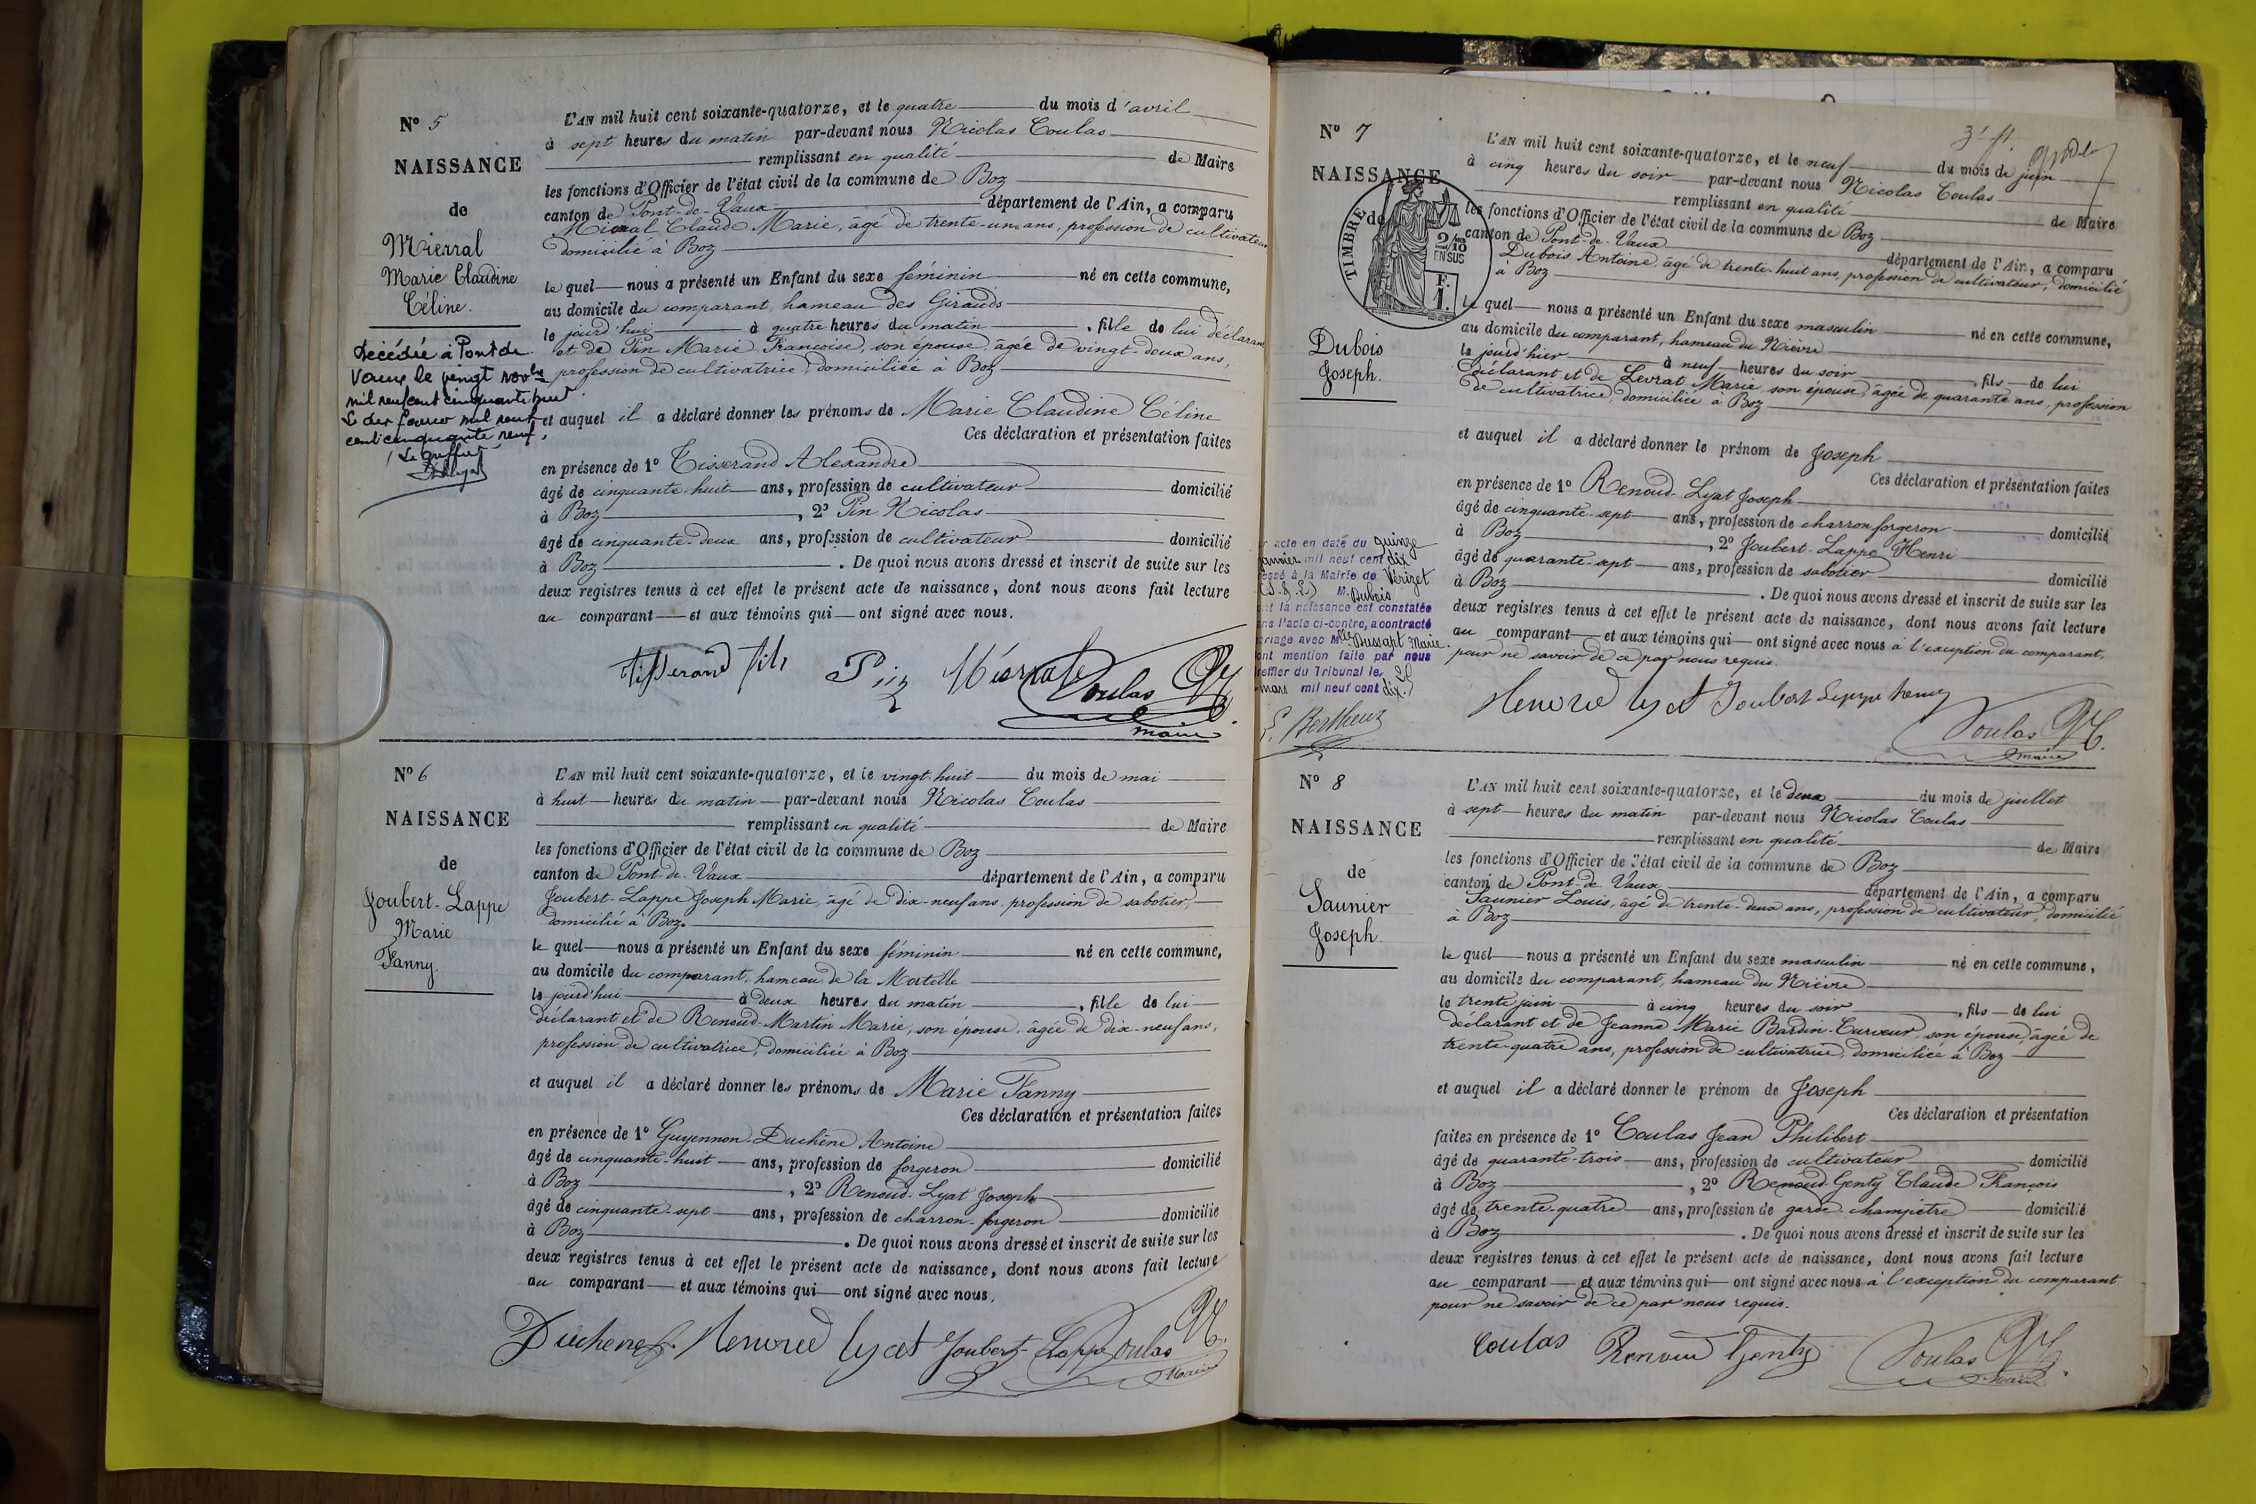 N° 5
NAISSANCE
de
Mierral
Marie Claudine
Céline.
Décédée à Pont de
Vaux le vingt novbre
mil neuf cent cinquante huit.
Le dix février mil neuf
cent cinquante neuf,
Le Greffier
L'AN mil huit cent soixante-quatorze, et le quatre du mois d'avril
à sept heures du matin par-devant nous Nicolas Coulas
remplissant en qualité de Maire
les fonctions d'Officier de l'état civil de la commune de Boz
canton de Pont-de-Vaux département de l'Ain, a comparu
Mierral Claude Marie, âgé de trente-un ans, profession de cultivateur
domicilié à Boz
le quel nous a présenté un Enfant du sexe féminin né en cette commune,
au domicile du comparant, hameau des Girauds
le jourd'hui à quatre heures du matin, fille de lui déclarant
et de Pin Marie Françoise, son épouse, âgée de vingt-deux ans,
profession de cultivatrice, domiciliée à Boz
et auquel il a déclaré donner les prénoms de Marie Claudine Céline
Ces déclaration et présentation faites
en présence de 1° Tisserand Alexandre
âgé de cinquante-huit ans, profession de cultivateur domicilié
à Boz, 2° Pin Nicolas
âgé de cinquante-deux ans, profession de cultivateur domicilié
à Boz. De quoi nous avons dressé et inscrit de suite sur les
deux registres tenus à cet effet le présent acte de naissance, dont nous avons fait lecture
au comparant et aux témoins qui ont signé avec nous.
Tisserand fils Pin Mierral Coulas
maire
N° 6
NAISSANCE
de
Joubert-Lappe
Marie
Fanny.
L'AN mil huit cent soixante-quatorze, et le vingt-huit du mois de mai
à huit heures du matin par-devant nous Nicolas Coulas
remplissant en qualité de Maire
les fonctions d'Officier de l'état civil de la commune de Boz
canton de Pont-de-Vaux département de l'Ain, a comparu
Joubert-Lappe Joseph Marie, âgé de dix-neuf ans, profession de sabotier,
domicilié à Boz.
le quel nous a présenté un Enfant du sexe féminin né en cette commune,
au domicile du comparant, hameau de la Mortelle
le jourd'hui à deux heures du matin, fille de lui
déclarant et de Renoud-Martin Marie, son épouse, âgée de dix-neuf ans,
profession de cultivatrice, domiciliée à Boz
et auquel il a déclaré donner les prénoms de Marie Fanny
Ces déclaration et présentation faites
en présence de 1° Guyennon-Duchêne Antoine
âgé de cinquante-huit ans, profession de forgeron domicilié
à Boz, 2° Renoud-Lyat Joseph
âgé de cinquante-sept ans, profession de charron-forgeron domicilié
à Boz. De quoi nous avons dressé et inscrit de suite sur les
deux registres tenus à cet effet le présent acte de naissance, dont nous avons fait lecture
au comparant et aux témoins qui ont signé avec nous.
Duchene Renoud lyat Joubert-Lappe Coulas
Maire
N° 7
NAISSANCE
de
TIMBRE
2/10
EN SUS
F.
1.
Dubois
Joseph.
acte en date du quinze
janvier mil neuf cent dix
à la Mairie de Vérizet
(S.&L.) M. Dubois
la naissance est constatée
l'acte ci-contre, a contracté
mariage avec Mlle Dussart Marie.
mention faite par nous
Greffier du Tribunal le
mars mil neuf cent dix.
Bertheux
L'AN mil huit cent soixante-quatorze, et le neuf du mois de juin
à cinq heures du soir par-devant nous Nicolas Coulas
remplissant en qualité de Maire
les fonctions d'Officier de l'état civil de la commune de Boz
canton de Pont-de-Vaux département de l'Ain, a comparu
Dubois Antoine, âgé de trente-huit ans, profession de cultivateur, domicilié
à Boz
le quel nous a présenté un Enfant du sexe masculin né en cette commune,
au domicile du comparant, hameau du Nièvre
le jourd'hier à neuf heures du soir, fils de lui
déclarant et de Levrat Marie son épouse, âgée de quarante ans, profession
de cultivatrice, domiciliée à Boz
et auquel il a déclaré donner le prénom de Joseph
Ces déclaration et présentation faites
en présence de 1° Renoud-Lyat Joseph
âgé de cinquante-sept ans, profession de charron forgeron domicilié
à Boz, 2° Joubert-Lappe Henri
âgé de quarante-sept ans, profession de sabotier domicilié
à Boz. De quoi nous avons dressé et inscrit de suite sur les
deux registres tenus à cet effet le présent acte de naissance, dont nous avons fait lecture
au comparant et aux témoins qui ont signé avec nous à l'exception du comparant,
pour ne savoir de ce par nous requis.
Renoud lyat Joubert Lappe henri
Coulas
maire
N° 8
NAISSANCE
de
Saunier
Joseph.
L'AN mil huit cent soixante-quatorze, et le deux du mois de juillet
à sept heures du matin par-devant nous Nicolas Coulas
remplissant en qualité de Maire
les fonctions d'Officier de l'état civil de la commune de Boz
canton de Pont-de-Vaux département de l'Ain, a comparu
Saunier Louis, âgé de trente-deux ans, profession de cultivateur, domicilié
à Boz
le quel nous a présenté un Enfant du sexe masculin né en cette commune,
au domicile du comparant, hameau du Nièvre
le trente juin à cinq heures du soir, fils de lui
déclarant et de Jeanne Marie Bardin-Curveur, son épouse, âgée de
trente-quatre ans, profession de cultivatrice, domiciliée à Boz
et auquel il a déclaré donner le prénom de Joseph
Ces déclaration et présentation
faites en présence de 1° Coulas Jean Philibert
âgé de quarante-trois ans, profession de cultivateur domicilié
à Boz, 2° Renoud-Genty Claude François
âgé de trente-quatre ans, profession de garde champêtre domicilié
à Boz. De quoi nous avons dressé et inscrit de suite sur les
deux registres tenus à cet effet le présent acte de naissance, dont nous avons fait lecture
au comparant et aux témoins qui ont signé avec nous à l'exception du comparant
pour ne savoir de ce par nous requis.
Coulas Renoud Genty Coulas
Maire